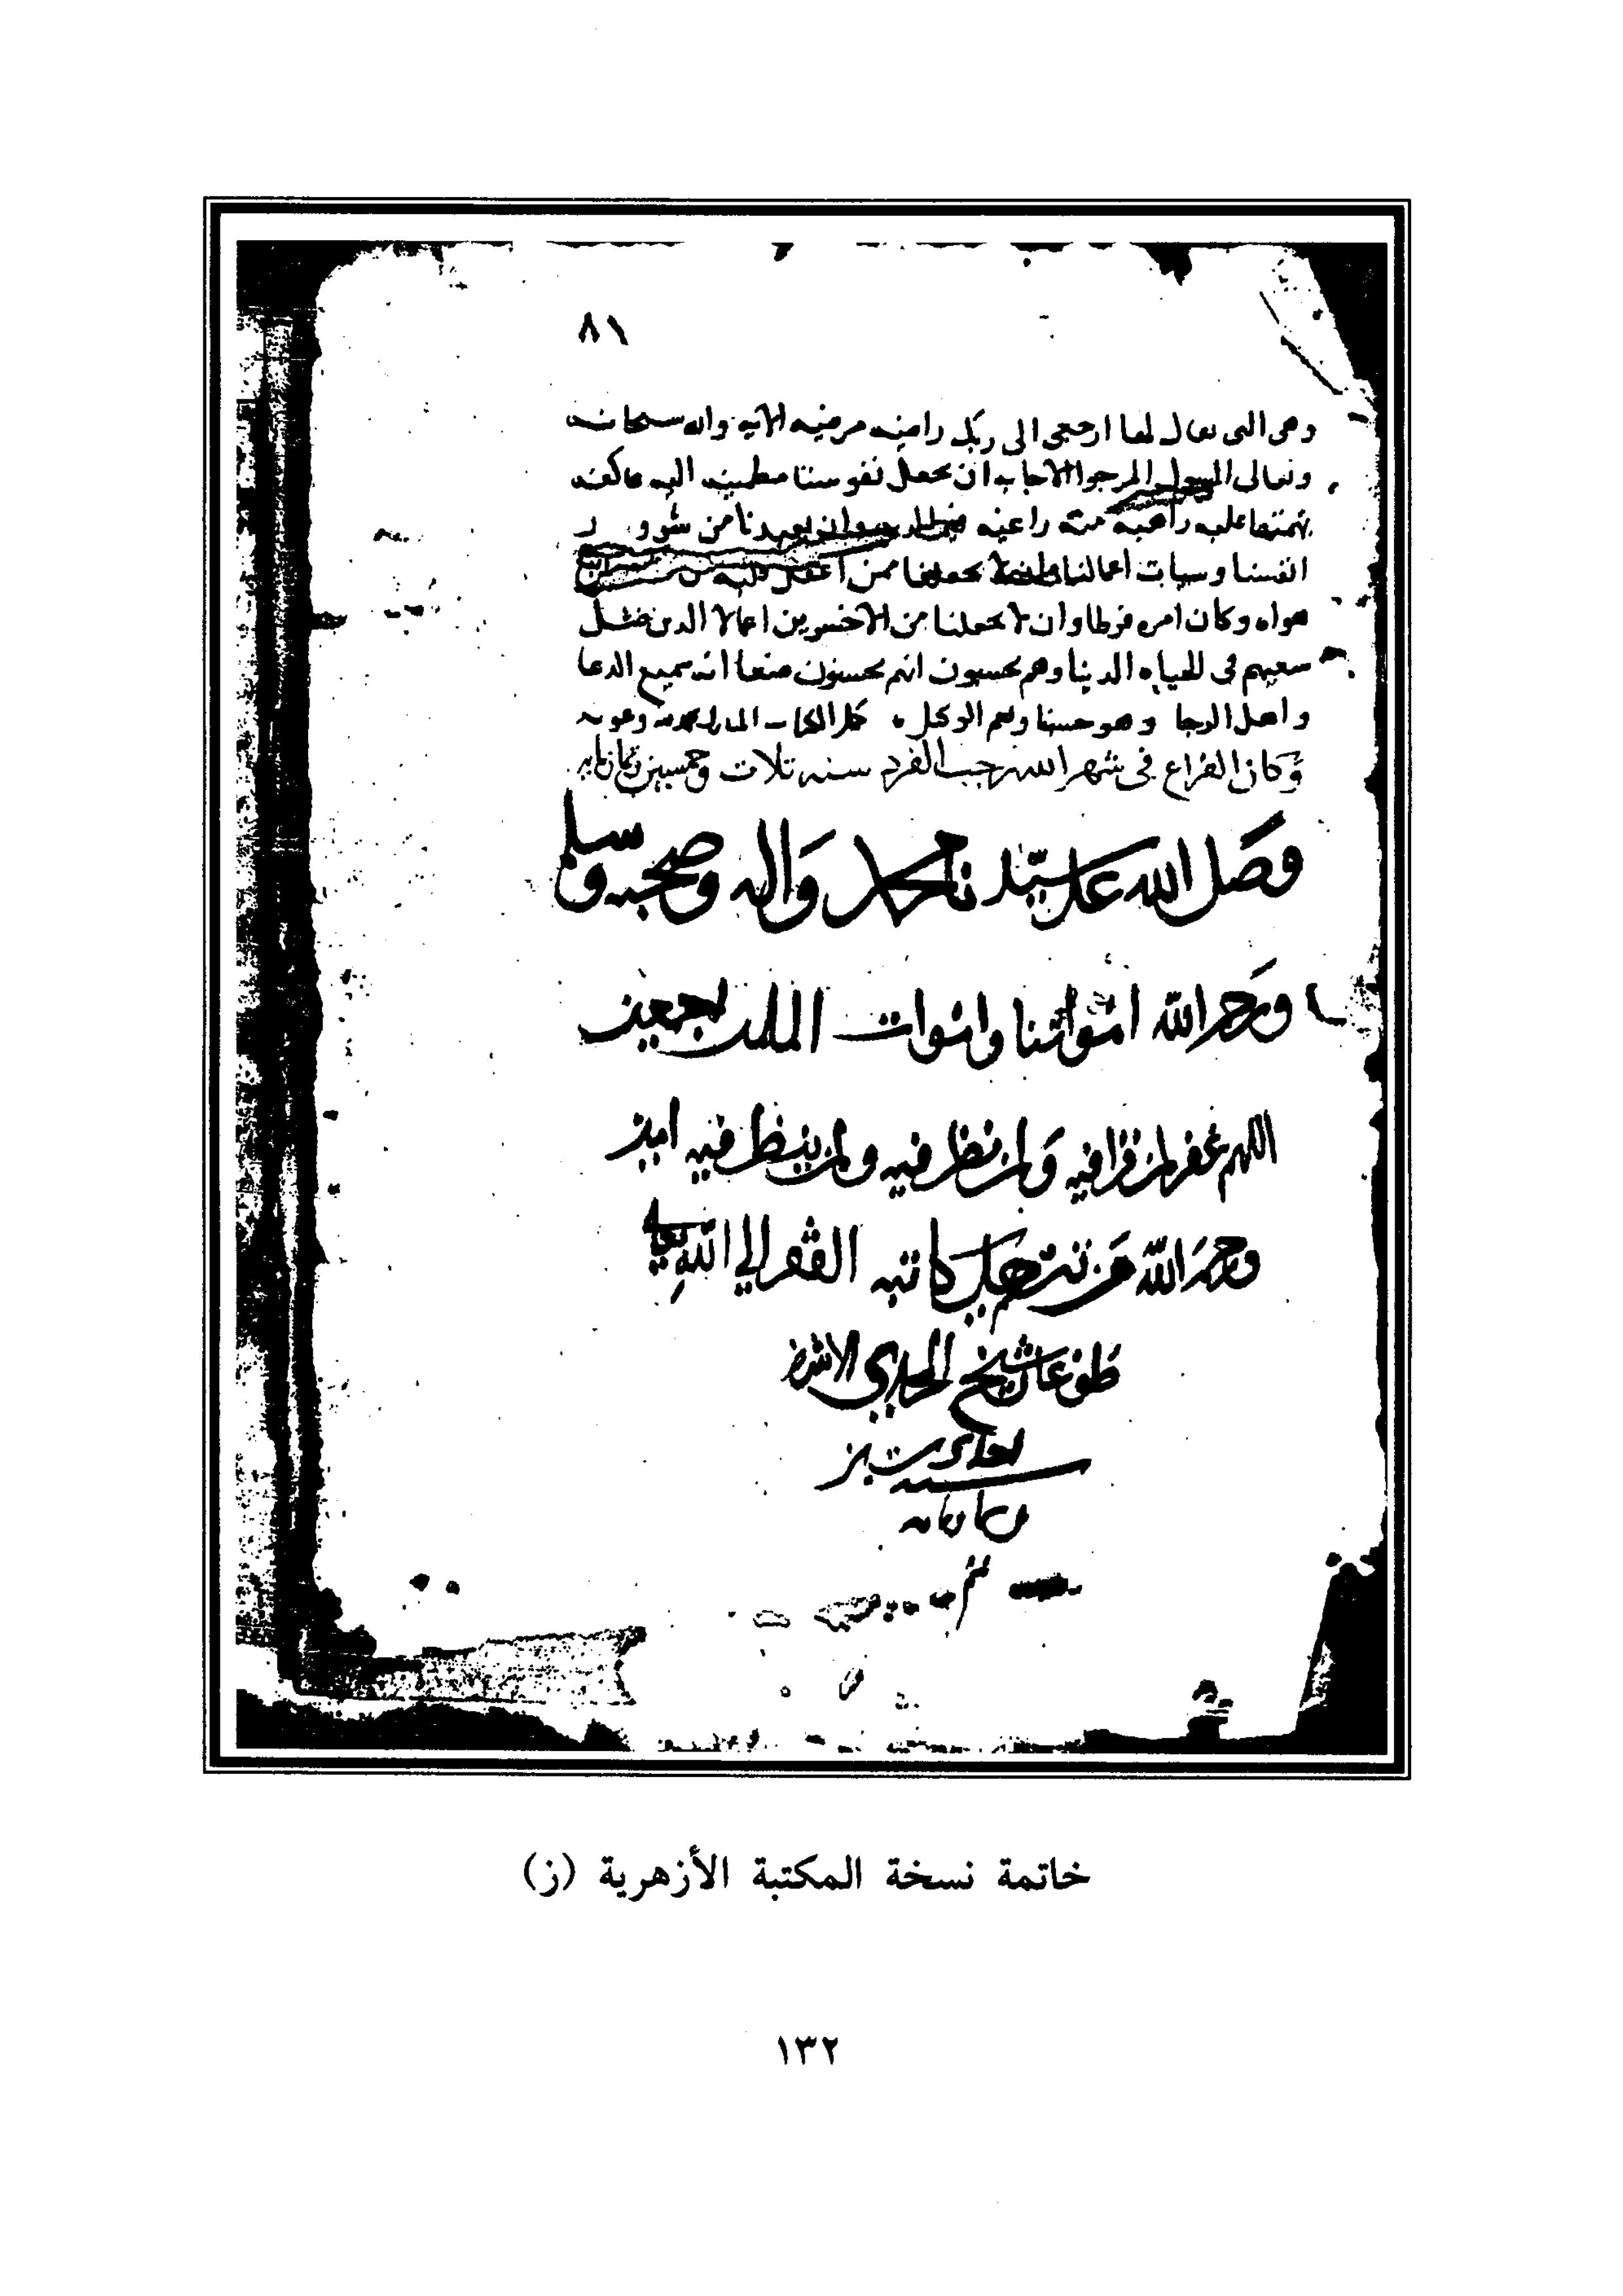 ٨١
وهى التى يقال لها ارجعى الى ربك راضيه مرضيه الآيه والله سبحانه
وتعالى المسول المرجوا الاجابه ان يجعل نفوسنا مطمينه اليه عاكفه
بهمتها عليه راهبه منه راغبه فيما لديه وان يعيدنا من شرور
انفسنا وسيات اعمالنا وان لا يجعلنا ممن اغفل قلبه واتبع
هواه وكان امره فرطا وان لا يجعلنا من الاخسرين اعمالا الدين ضل
سعيهم فى الحياه الدنيا وهم يحسبون انهم يحسنون صنعا انه سميع الدعا
واهل الرجا وهو حسبنا ونعم الوكيل كمل الكتاب المبارك بحمد الله وعونه
وكان الفراغ فى شهر الله رجب الفرد سنه تلات وخمسين وثمانمايه
وصل الله على سيدنا محمد وآله وصحبه وسلم
ورحم الله امواتنا واموات اجمعين
اللهم غفر لمن قرا فيه ولمن نظر فيه ولمن ينظر فيه امين
ورحم الله من كاتبه الفقير الي الله تعالى
شيخ
خاتمة نسخة المكتبة الأزهرية (ز)
١٣٢